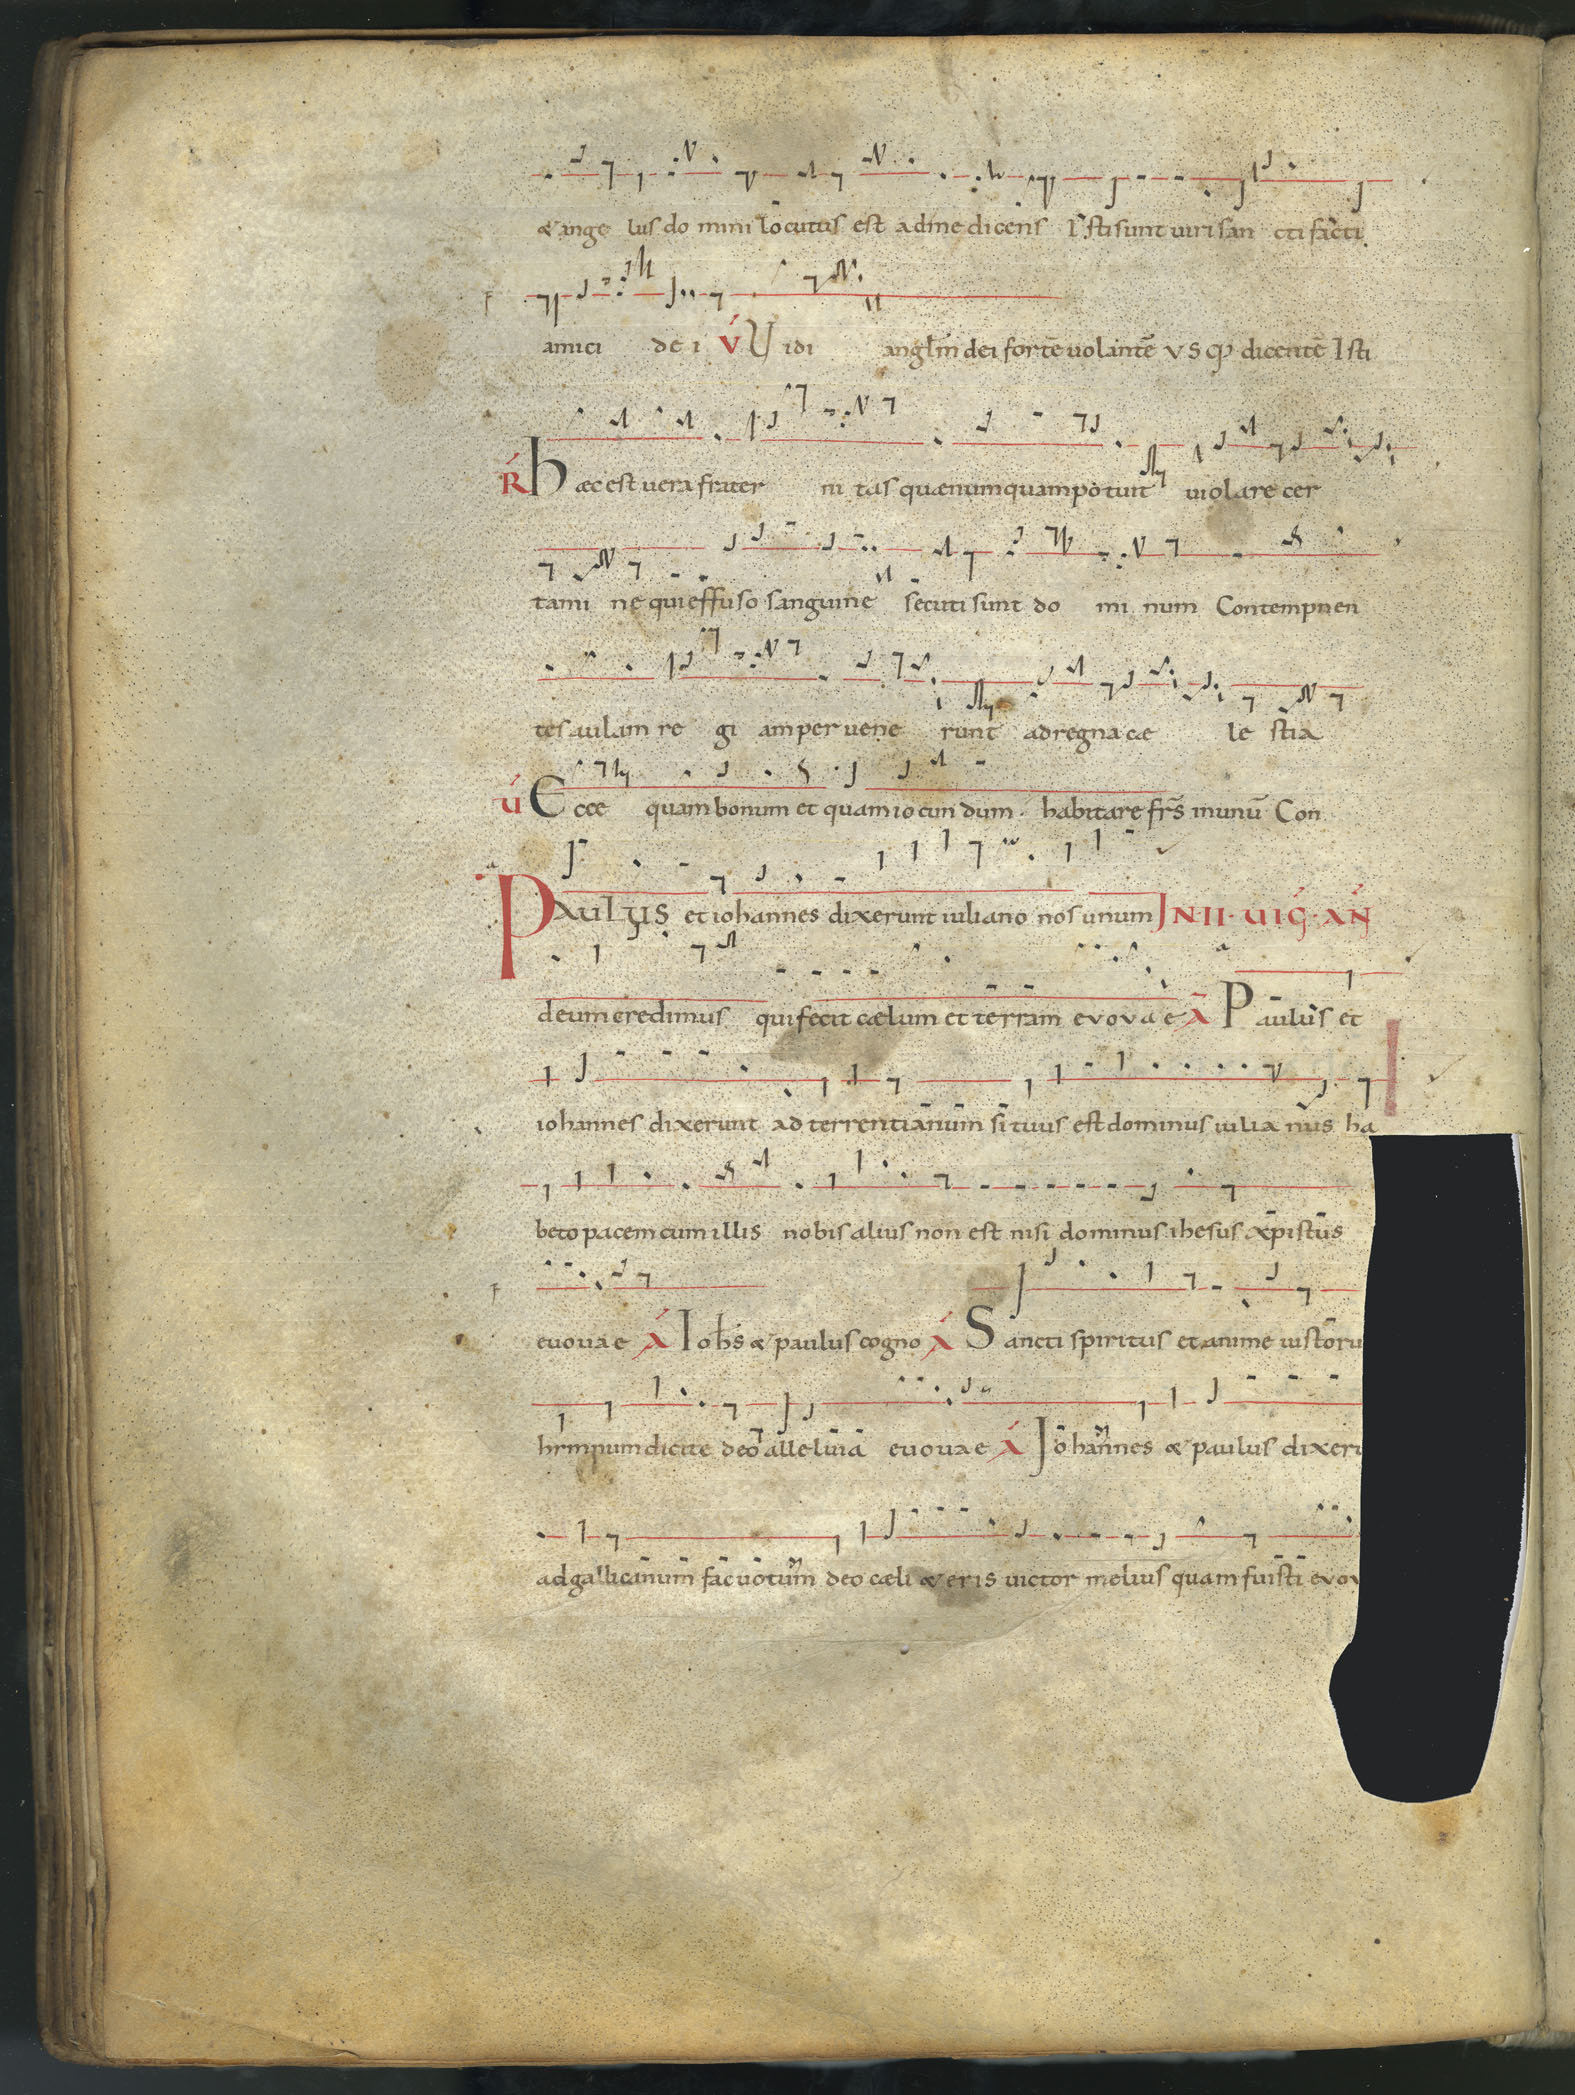 & ange lus do mini locutus est ad me dicens Isti sunt uiri san cti facti
amici de i V Uidi anglm dei forte uolante vsq dicente Isti
R haec est uera frater ni tas quae numquam potuit uiolare cer
tami ne qui effuso sanguine secuti sunt do mi num Contempnen
tes aulam re gi am peruene runt ad regna cae le stia
V Ecce quam bonum et quam iocundum · habitare frs inunu Con
Paulus et iohannes dixerunt iuliano nos unum IN II · UIG · AN
deum credimus qui fecit caelum et terram evovae A Paulus et
iohannes dixerunt ad terrentianum si tuus est dominus iulianus ha
beto pacem cum illis nobis alius non est nisi dominus ihesus xpistus
euouae A Iohs & paulus cogno A Sancti spiritus et anime iustoru
hymnum dicite deo alleluia euouae A Iohannes & paulus dixeru
ad gallicanum fac uotum deo caeli & eris uictor melius quam fuisti evov